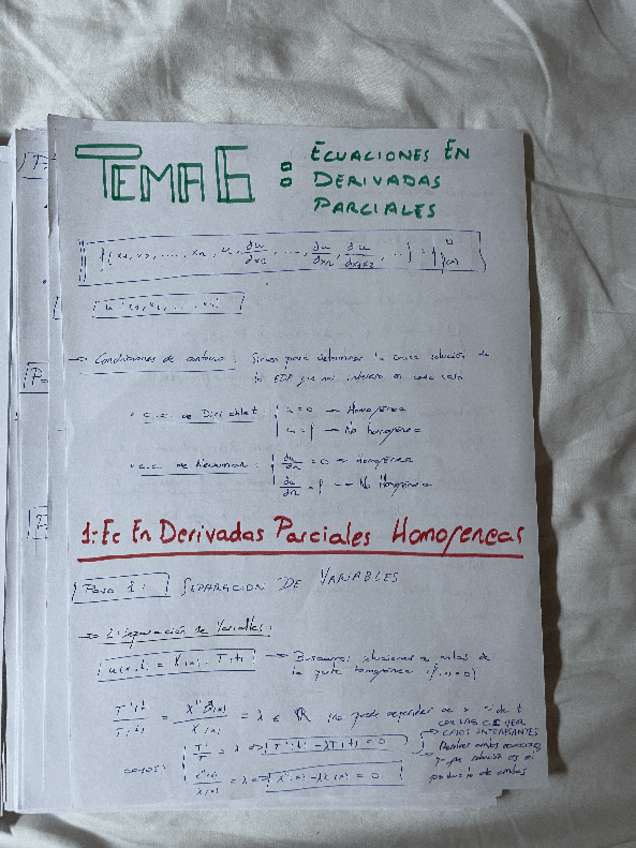 TEMA 6 :
ECUACIONES EN
DERIVADAS
PARCIALES
f(x₁, x₂, ..., xₙ, u, ∂u/∂x₁, ..., ∂u/∂xₙ, ∂u/∂x₁x₂, ...) =
→ Condiciones de contorno : Sirven para determinar la única solución de
las EDP que me interesa en cada caso
• c.c. de Dirichlet : u = 0 → Homogénea
u = f → No homogénea
• c.c. de Neumann : ∂u/∂n = 0 → Homogénea
∂u/∂n = f → No Homogénea
1: Ec En Derivadas Parciales Homogeneas
Paso 1 : SEPARACION DE VARIABLES
→ Separación de Variables :
u(x,t) = X(x) · T(t) → Buscamos soluciones de
la parte homogénea
T'(t)/T(t) = X''(x)/X(x) = λ ∈ ℝ no puede depender de x ni de t
CON LAS C.C VER
CASOS INTERESANTES
T'/T = λ ⇔ T'(t) - λT(t) = 0
Resolver ambas ecuaciones
X''(x)/X(x) = λ ⇔ X''(x) - λX(x) = 0
solución es el
producto de ambas